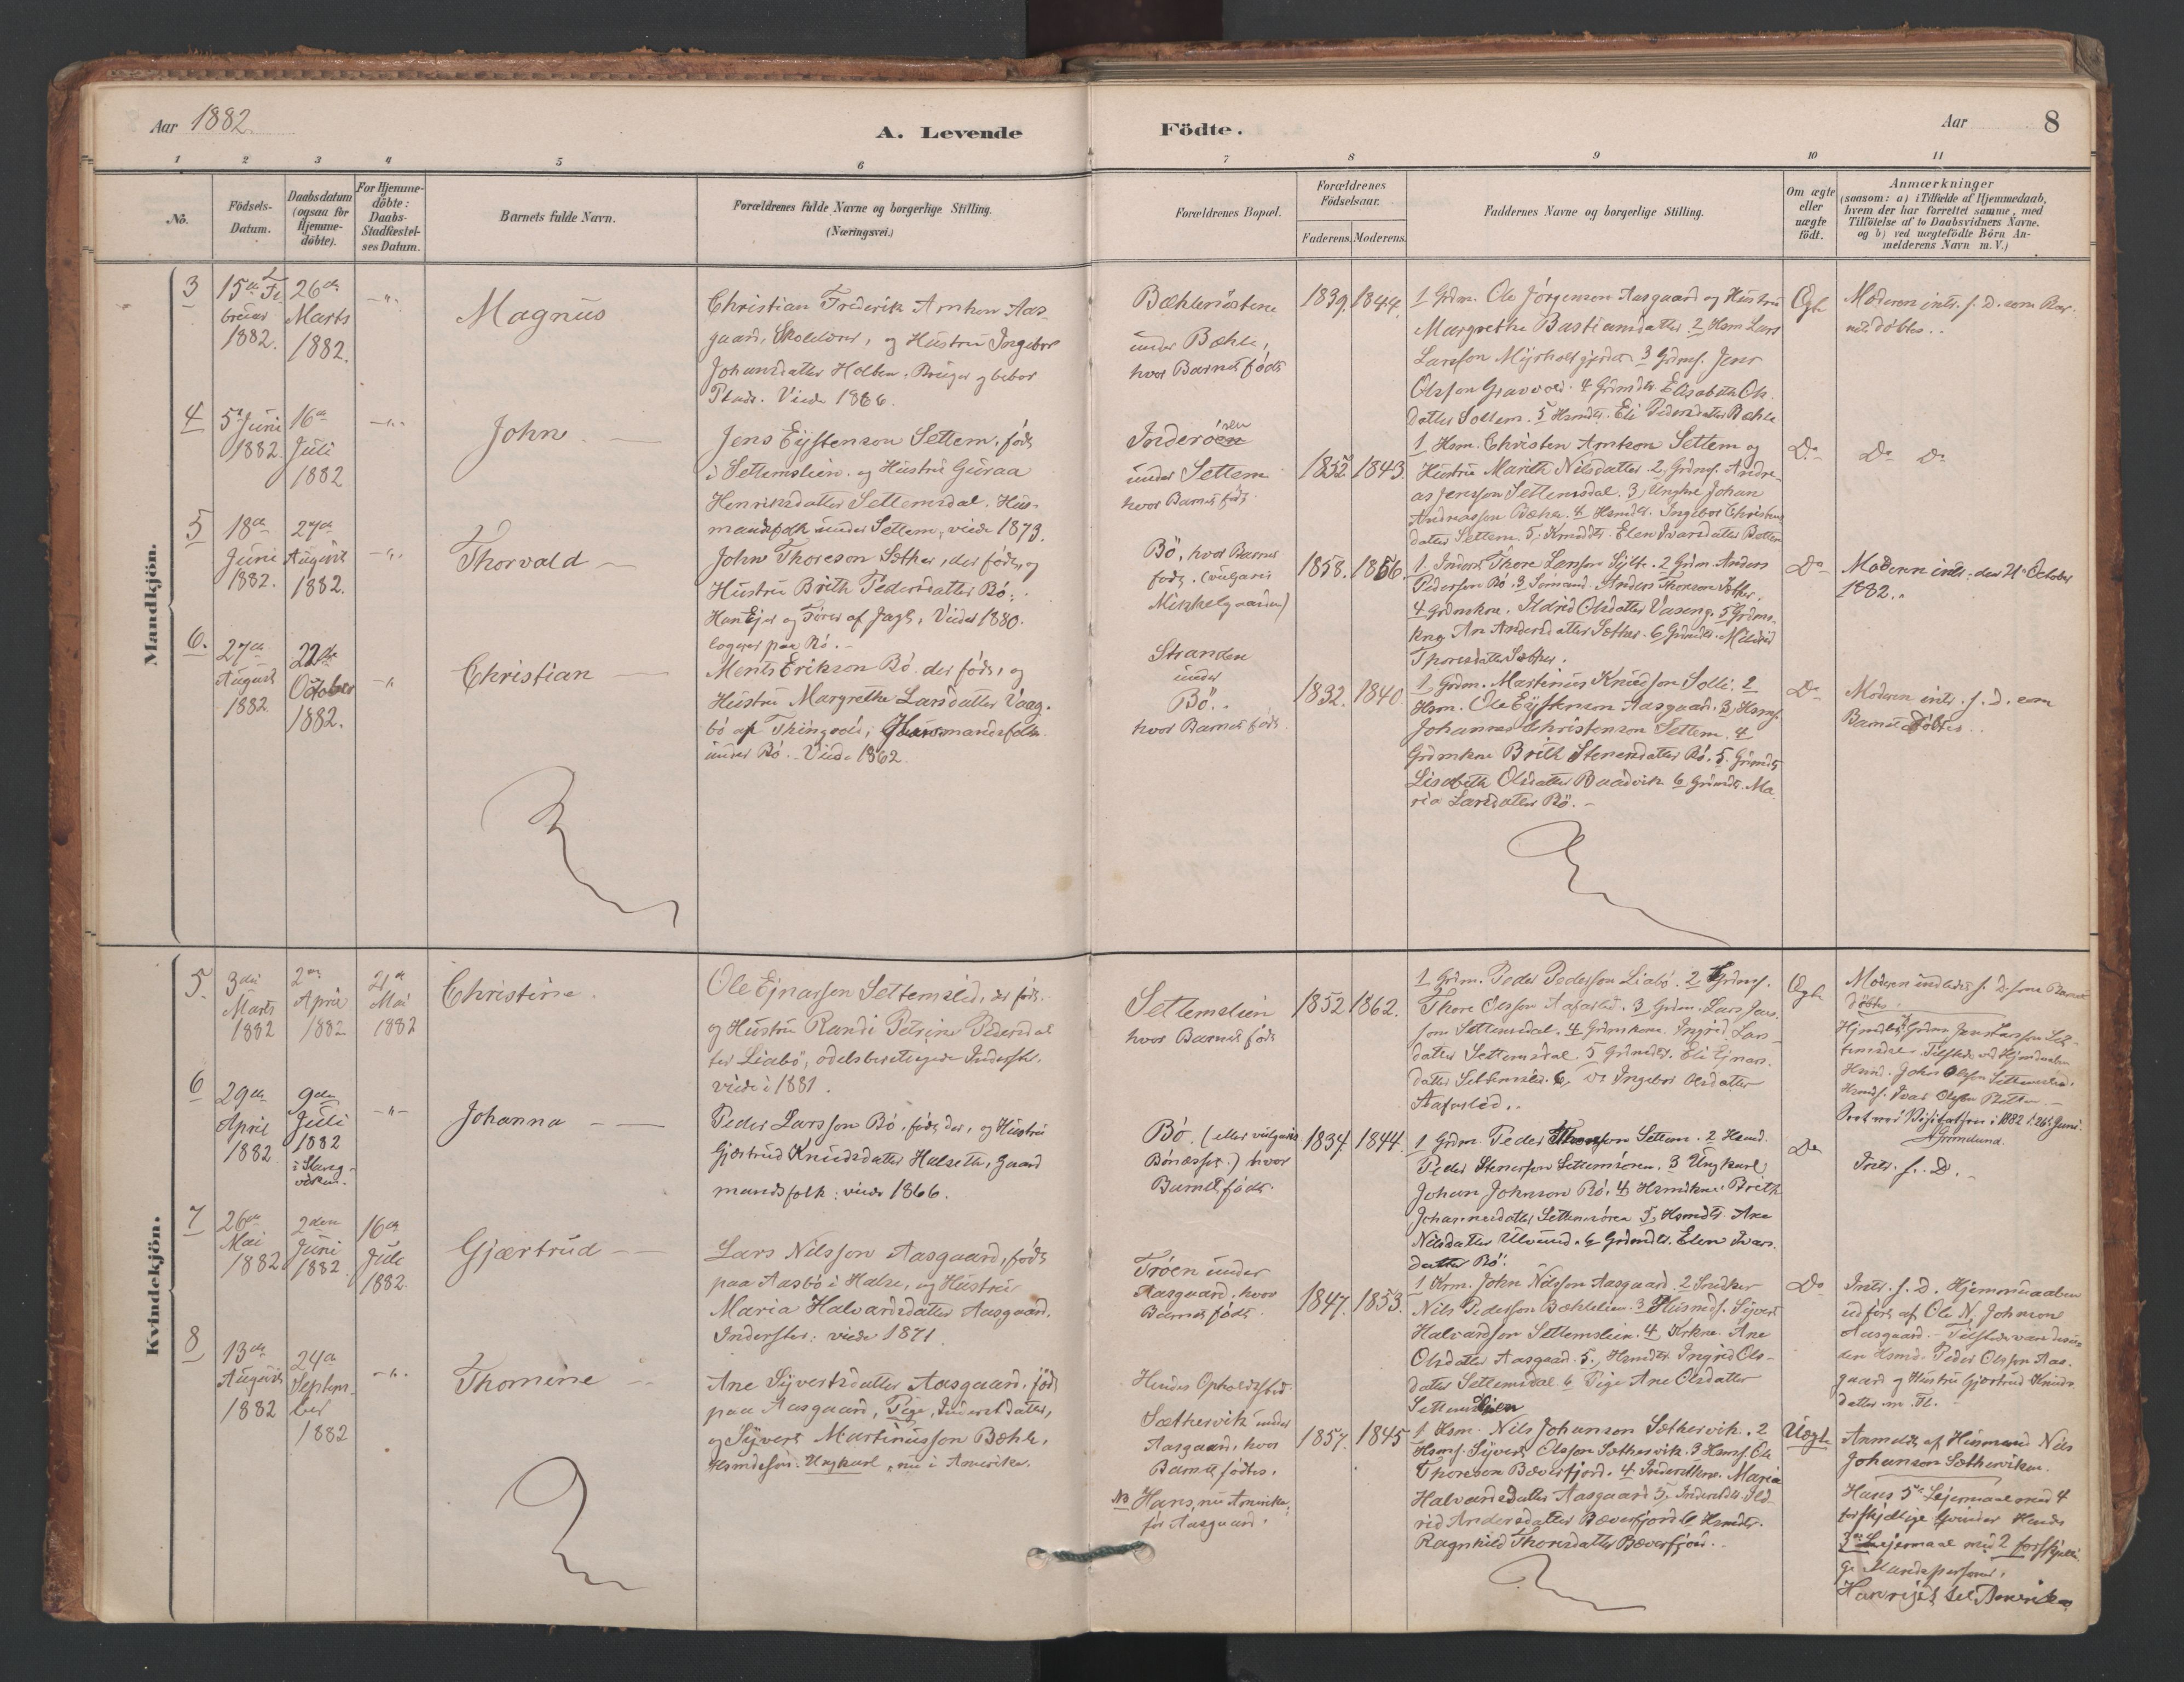 Aar 1882.
A. Levende Födte.
Aar
8
1 2 3 4 5 6 7 8 9 10 11
No.
Födsels-Datum.
Daabsdatum (ogsaa for Hjemme-döbte).
For Hjemme-döbte: Daabs-Stadfæstel-ses Datum.
Barnets fulde Navn.
Forældrenes fulde Navne og borgerlige Stilling. (Næringsvei.)
Forældrenes Bopæl.
Forældrenes Födselsaar.
Faderens. Moderens.
Faddernes Navne og borgerlige Stilling.
Om ægte eller uægte födt.
Anmærkninger
(saasom: a) i Tilfælde af Hjemmedaab,
hvem der har forrettet samme, med
Tilföielse af to Daabsvidners Navne.
og b) ved uægtefödte Börn An-
melderens Navn m. V.)
Mandkjön.
3
15de Fe
bruar
1882.
26de
Marts
1882.
Magnus
Christian Frederik
gaard, og Hustru Ingebor
Johansdatter
Plads. Viede 1866.
under Bæhle,
hvor Barnet föds
1839. 1844.
1 Grdm. Ole Jörgenson Aasgaard og Hustru
Margrethe Bastiansdatter 2 Hsm Lars
Larsson 3 Grdms. Jens
Olsson 4 Grdmdtr. Elisabeth Ols-
datter Settem. 5 Hsmdtr. Eli Pedersdatter Bæhle
Ægte
Moderen intr. s. D. som Bar-
net döbtes.
4
5te Juni
1882.
16de
Juli
1882
John
Jens Eystenson Settem, föds
i Settemslien. og Hustru Guraa
Henriksdatter Settemsdal. Hus-
mandsfolk under Settem, viede 1873.
under Settem
hvor Barnet föds.
1852 1843.
1 Hsm. Christen Arntson Settem og
Hustru Marith Nilsdatter 2, Grdms. Andre-
as Jensson Settemsdal. 3, Ungkarl Johan
Andreasson Bæhle. 4 Hsmdtr. Ingebor Christens
datter Settem. 5, Elen Ivarsdatter
Do
Do Do
5
18de
Juni
1882.
27de
August
1882.
Thorvald
John Thoreson Sæther, der föds, og
Hustru Brith Pedersdatter Bö.
Han Ejer og Förer af Jagt, Viede 1880.
logerer paa Bö.
Bö, hvor Barnet
föds. (vulgaris
Mikkelgaarden)
1858. 1856.
1 Inderst Thore Larsson 2 Grdm. Anders
Pederson Bö 3 Sömand Anders Thoreson Sæther.
4 Grdmskone. Ildrid Olsdatter Vaseng. 5 Grdms-
kne An Andersdatter Sæther. 6 Grdmdtr. Mildrid
Thoresdatter Sæther.
Do
Moderen intr. den October
1882.
6.
27de
August
1882
22de
October
1882.
Christian
Ments Erikson Bö. der föds, og
Hustru Margrethe Larsdatter Vaag-
bö af Thingvold, Husmandsfolk
under Bö. Viede 1862.
Stranden
under
Bö.
hvor Barnet föds
1832. 1840.
1 Grdm. Martinus Knudson Solli. 2
Hsm. Ole Eystenson Aasgaard. 3, Hsms.
Johannes Christenson Settem. 4
Grdmkne Brith Stenersdatter Bö. 5. Grdmdtr
Lisabeth Olsdatter Baadvik 6 Grdmdtr. Ma-
ria Larsdatter Bö.
Do
Moderen intr. s. D. som
Barnet döbtes.
Kvindekjön.
5.
3die
Marts
1882
2den
April
1882
21de
Mai
1882
Christine.
Ole Ejnarson Settemslid, der föds.
og Hustru Randi Petrine Pedersdat-
ter Liabö, odelsberettigede
viede i 1881.
Settemslien
hvor Barnet föds
1852 1862.
1 Grdm. Peder Pederson Liabö. 2 Grdms.
Thore Olsson 3 Grdm. Lars Jens-
son Settemsdal. 4 Grdmkone. Ingrid Lars-
datter Settemsdal. 5 Grdmdtr. Eli Ejnars-
datter Settemslid. 6, Do Ingebor Olsdatter
Ægte
Moderen indledet s. D. som Barnet
döbtes.
Hjmdöbt af Grdm Jens Larsson Set-
temsdal. Tilstede ved Hjmdaaben
Hsmd. John Olsson Settemslien,
Hsmds. Ivar Olsson
i 1882 26 Juni.
6
29de
April
1882
9de
Juli
1882
Johanna
Peder Larsson Bö, föds der, og Hustru
Gjertrud Knudsdatter Halseth, Gaard
mandsfolk: viede 1866.
Bö. (eller vulgaris
Bönesset.) hvor
Barnet föds.
1834. 1844.
1 Grdm. Peder Settem. 2 Hsmd.
Peder Stenerson Settemsören. 3 Ungkarl
Johan Johnson Bö. 4 Hsmdkne Brith
Johannesdatter Settemsören 5, Hsmdtr. Ane
Nilsdatter Ulvund. 6 Grdmdtr. Elen Ivars-
datter Bö.
Do
Intr. s. D.
7
26de
Mai
1882
2den
Juni
1882.
16de
Juli
1882.
Gjærtrud
Lars Nilsson Aasgaard, föds
paa Aasbö i Halse, og Hustru
Maria Halvardsdatter Aasgaard.
Inderster: viede 1871.
Tröen under
Aasgaard, hvor
Barnet föds.
1847. 1853.
1 Krm. John Nilsson Aasgaard. 2 Snedker
Nils Pederson Bæhlelien. 3 Husmds. Sivert
Halvardson Settemslien. 4 Krkne. Ane
Olsdatter Aasgaard. 5., Hsmdtr. Ingrid Ols-
datter Settemsdal. 6 Pige Ane Olsdatter
Settemslien
Do
Intr. s. D. Hjemmedaaben
udfört af Ole N. Johnsen
Aasgaard. Tilstede var desu-
den Hsmd. Peder Olsson Aas-
gaard og Hustru Gjertrud Knuds-
datter m. Fl.
8
13de
August
1882
24de
Septem-
ber
1882
Thomine
Ane Syvertsdatter Aasgaard, föds
paa Aasgaard, Pige, Inderstdatter,
og Syvert Martinusson Bæhle,
Hsmdssön. Ungkarl, nu i Amerika.
Hendes Opholdssted.
Sæthervik under
Aasgaard, hvor
Barnet födtes.
NB Hans, nu Amerika,
för Aasgaard.
1857. 1845
1 Hsm. Nils Johanson Sæthervik. 2
Hsms. Syvert Olsson Sæthervik. 3 Hsms. Ole
Thoreson Bæverfjord. 4 Inderstkone. Maria
Halvardsdatter Aasgaard 5, Inderstdtr. Ild-
rid Andersdatter Bæverfjord 6 Hsmdtr.
Ragnhild Thoresdatter Bæverfjord.
Uægte
Anmeldt af Husmand Nils
Johanson Sætherviken.
Hans 5te Lejermaal med 4
forskjellige Qvinder Hendes
Lejermaal med 2 forskjelli-
ge Mandspersoner.
Han rejst til Amerika